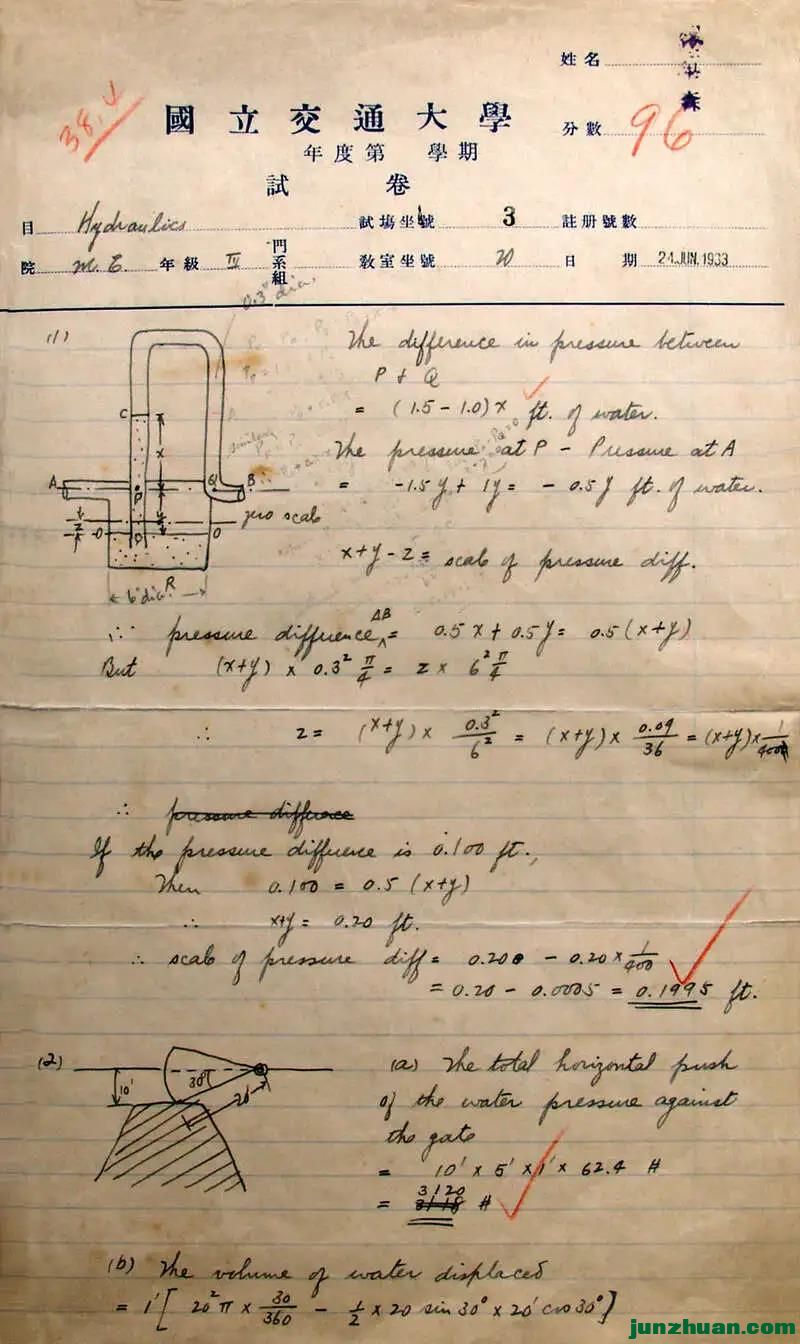 姓名
38.√
國立交通大學
分數 96
年度第 學期
試 卷
目 Hydraulics 試場坐號 3 註册號數
院 M.E. 年級 IV 門系組 教室坐號 20 日期 24.JUN.1933
0.3" dia.
(1)
The difference in pressure between
P & Q
= (1.5 - 1.0)x ft. of water.
The pressure at P - Pressure at A
= -1.5y + 1y = - 0.5y ft. of water.
C
x
A P Q B
zero scale
z
O D O
R
6" dia.
x+y-z = scale of pressure diff.
∴ pressure difference AB = 0.5x + 0.5y = 0.5(x+y)
But (x+y) x 0.3² π/4 = z x 6² π/4
∴ z = (x+y) x 0.3²/6² = (x+y) x 0.09/36 = (x+y) x 1/400
∴ pressure difference
If the pressure difference is 0.100 ft.,
Then 0.100 = 0.5 (x+y)
∴ x+y = 0.20 ft.
∴ scale of pressure diff = 0.200 - 0.20 x 1/400
= 0.20 - 0.0005 = 0.1995 ft.
(2)
10'
30°
20'
(a) The total horizontal push
of the water pressure against
the gate
= 10' x 5' x 1' x 62.4 #
= 3120 #
(b) The volume of water displaced
= 1' [ 20² π x 30/360 - 1/2 x 20 sin 30° x 20' cos 30° ]
junzhuan.com